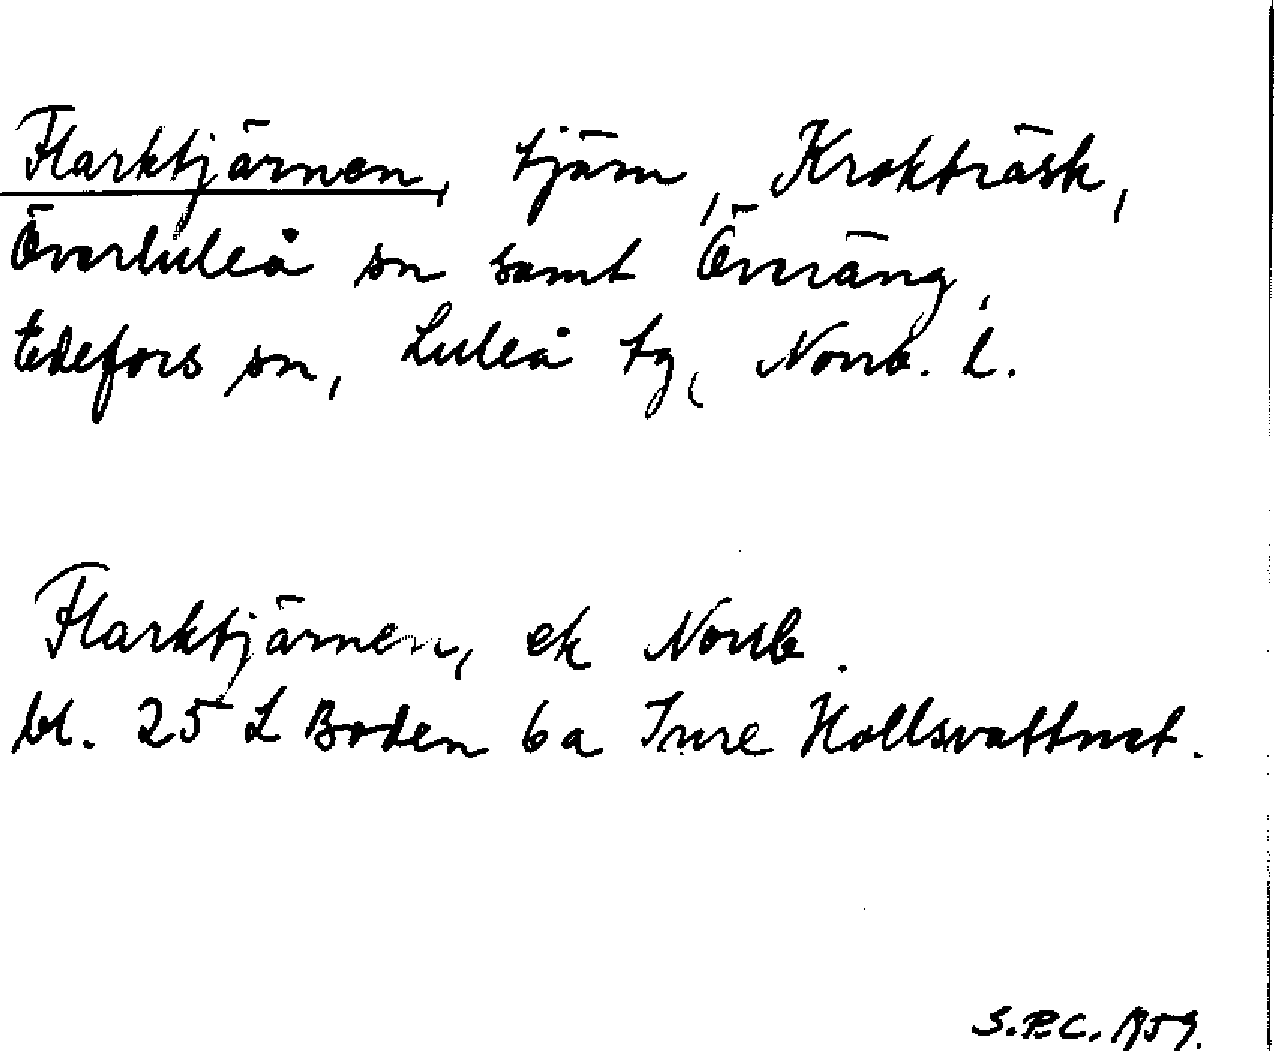 Flarktjärnen, tjärn, Krokträsk,
Överluleå sn samt Överäng,
Edefors sn, Luleå tg, Norrb. l.
Flarktjärnen, ek Norrb.
bl. 25 L Boden 6a Inre Hollsvattnet.
S.P.C. 1959.